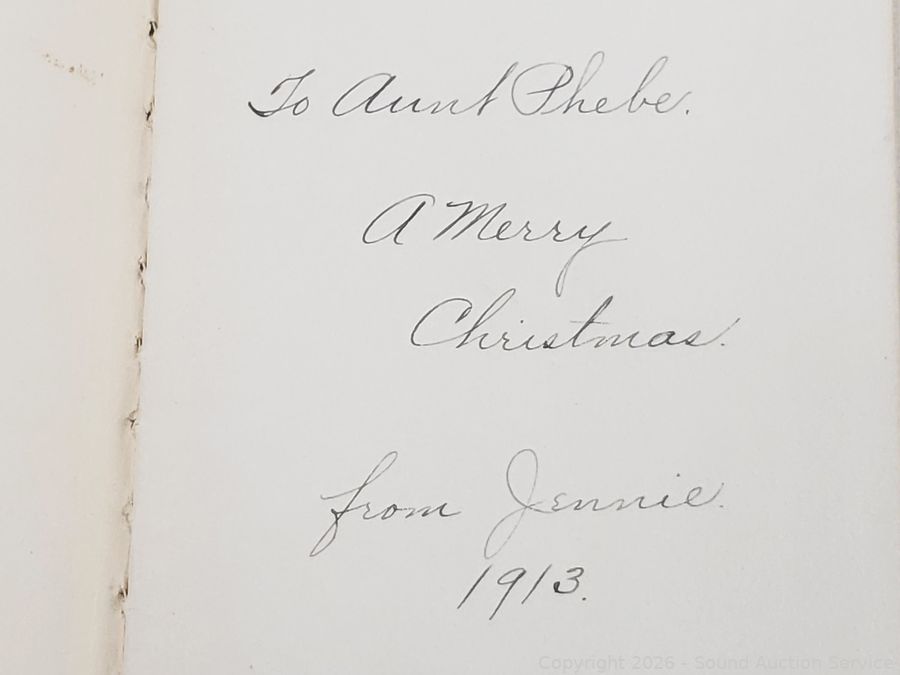 To Aunt Phebe.
A Merry
Christmas.
from Jennie.
1913.
Copyright 2026 - Sound Auction Service